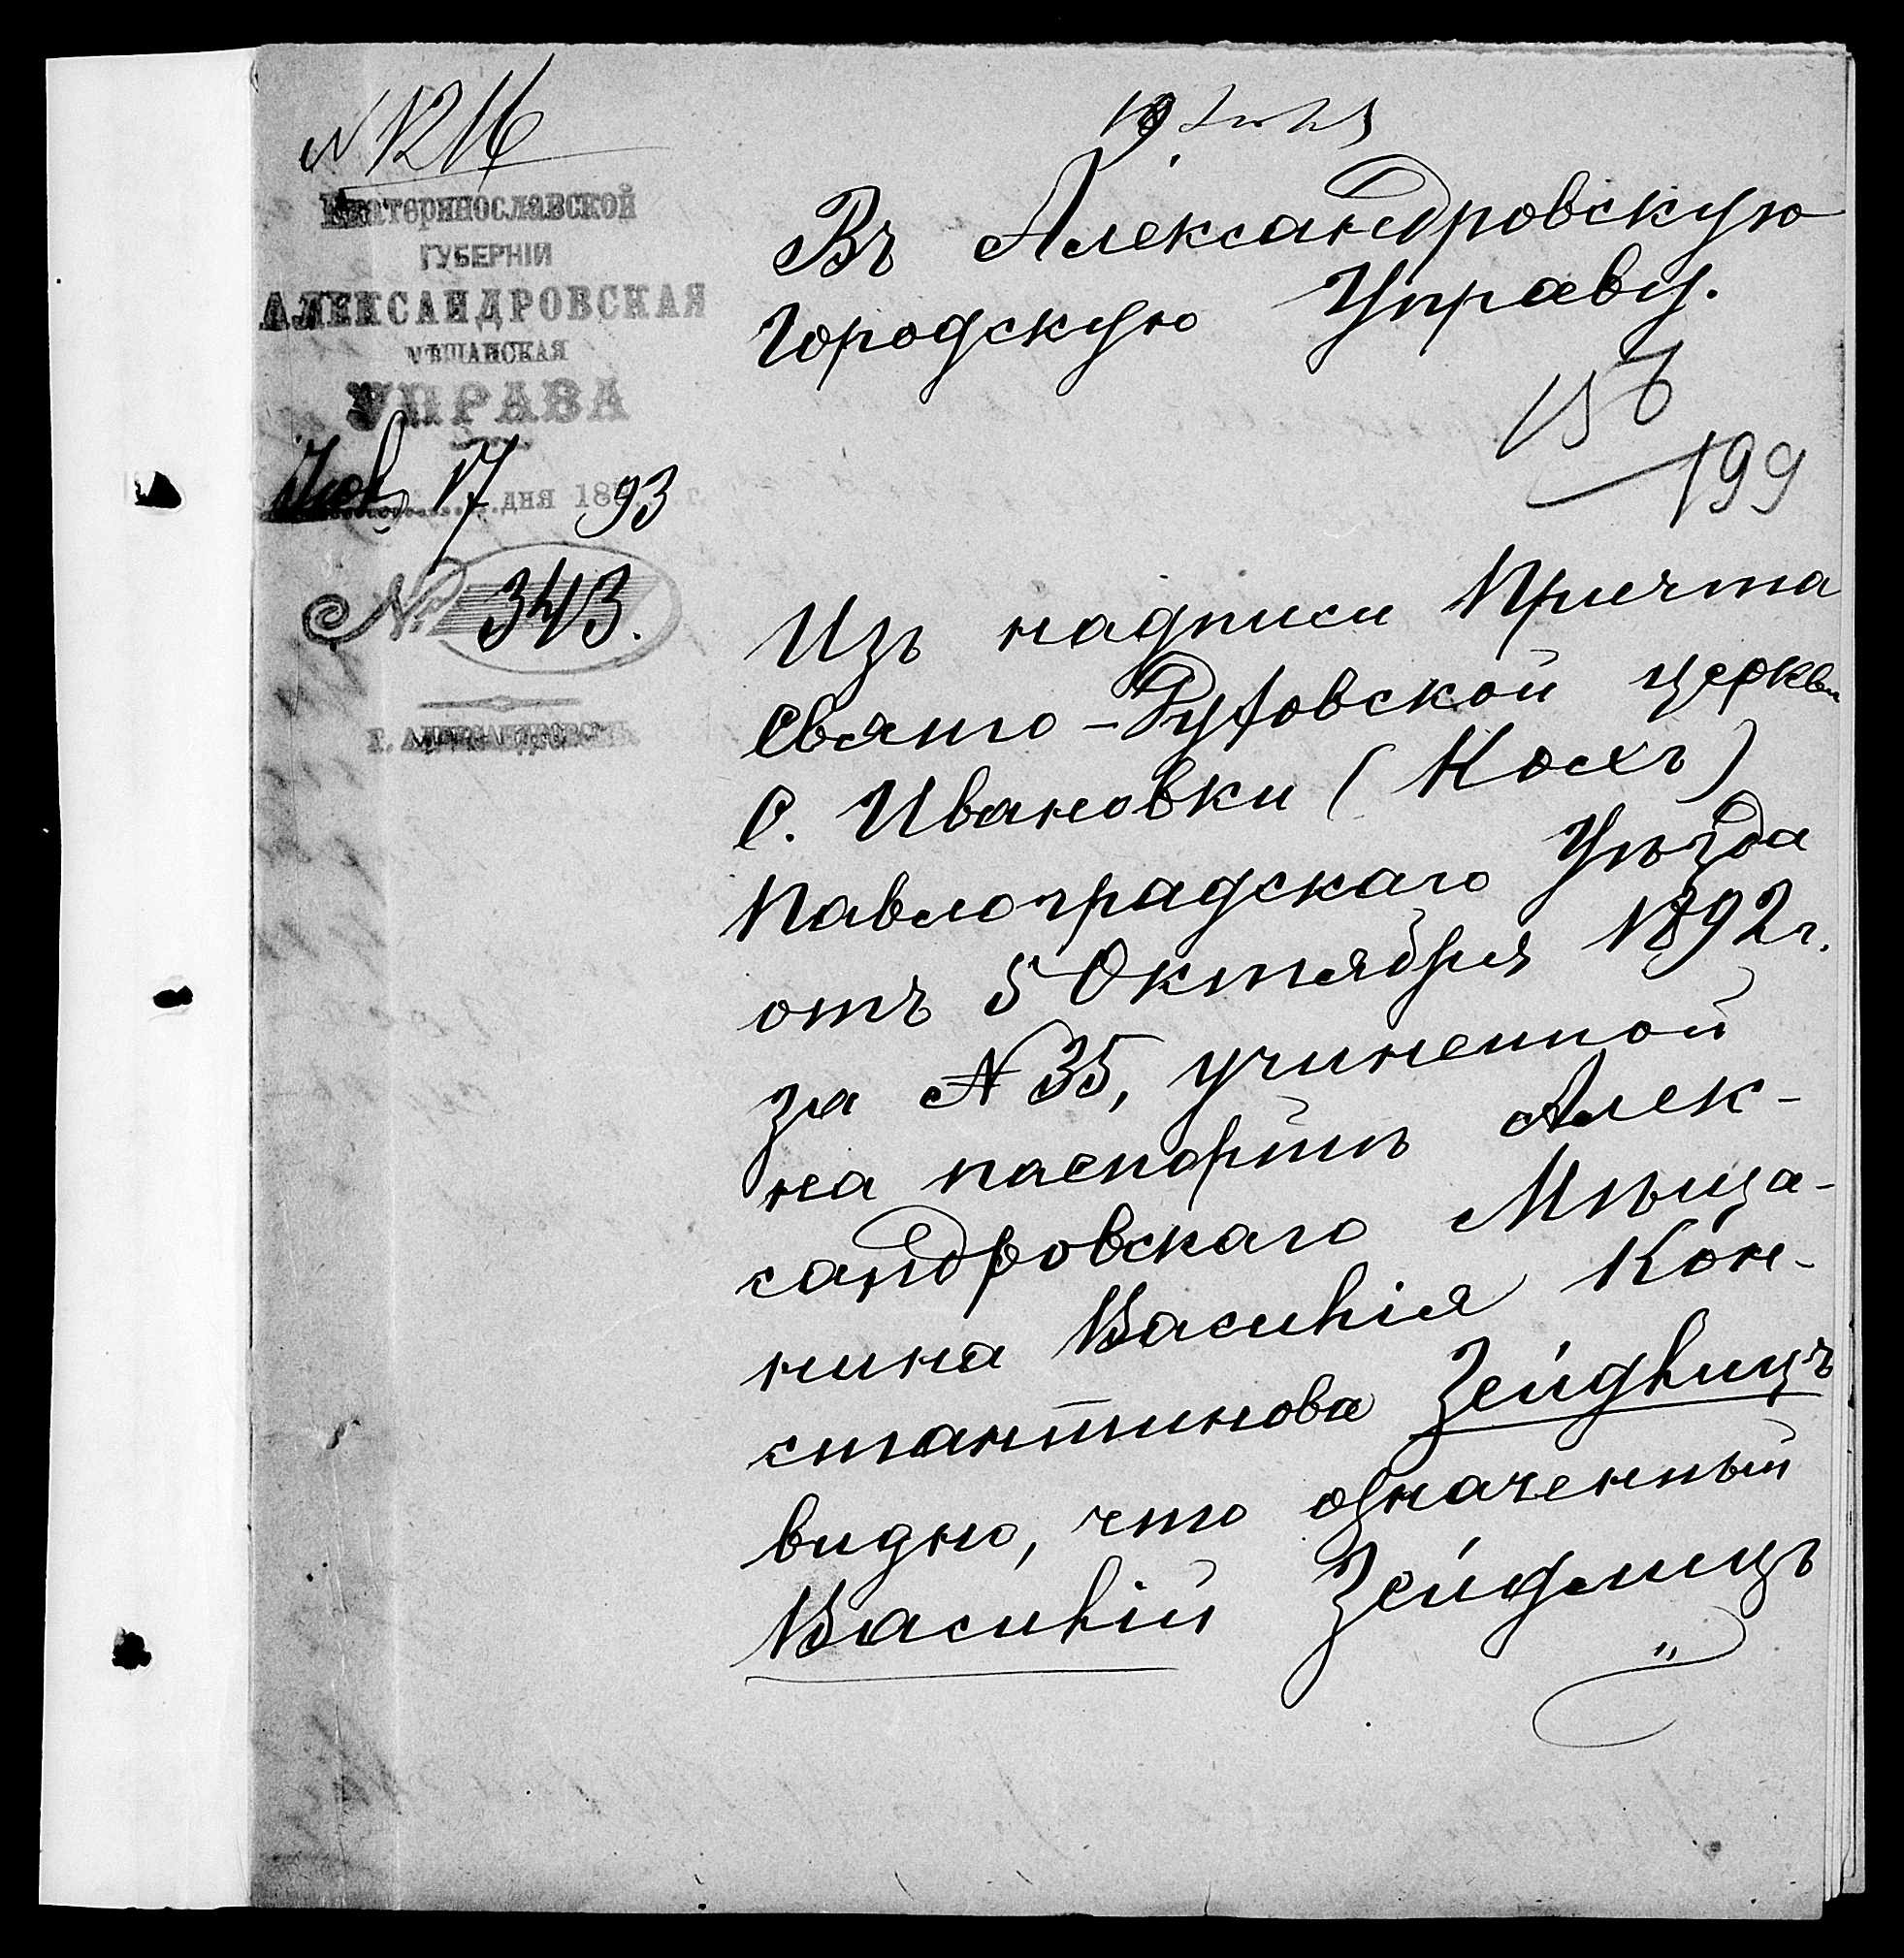 № 1216
Екатеринославской
ГУБЕРНІИ
АЛЕКСАНДРОВСКАЯ
МѢЩАНСКАЯ
УПРАВА
17 дня 1893 г.
№ 343.
Г. АЛЕКСАНДРОВСКЪ
19 Іюля
Въ Александровскую
Городскую Управу.
199
Изъ надписи Причта
Свято-Руфовской церкви
с. Ивановки (Кохъ)
Павлоградскаго Уѣзда
отъ 5 Октября 1892 г.
за № 35, учиненной
на паспортѣ Алек-
сандровскаго Мѣща-
нина Василія Кон-
стантинова Зейдлицъ
видно, что означенный
Василій Зейдлицъ